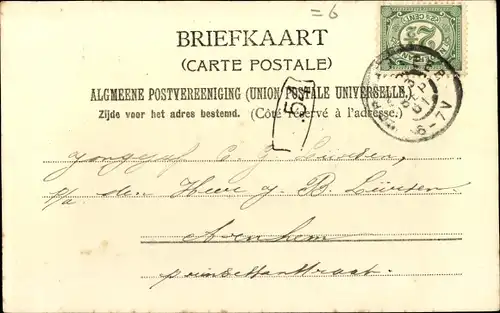 =6
BRIEFKAART
(CARTE POSTALE)
ALGMEENE POSTVEREENIGING (UNION POSTALE UNIVERSELLE)
Zijde voor het adres bestemd. (Côté réservé à l'adresse.)
2½
CENT
6-7V
Jongejuf C. J. Lürsen,
p/a den Heer J. B. Lürsen
Arnhem